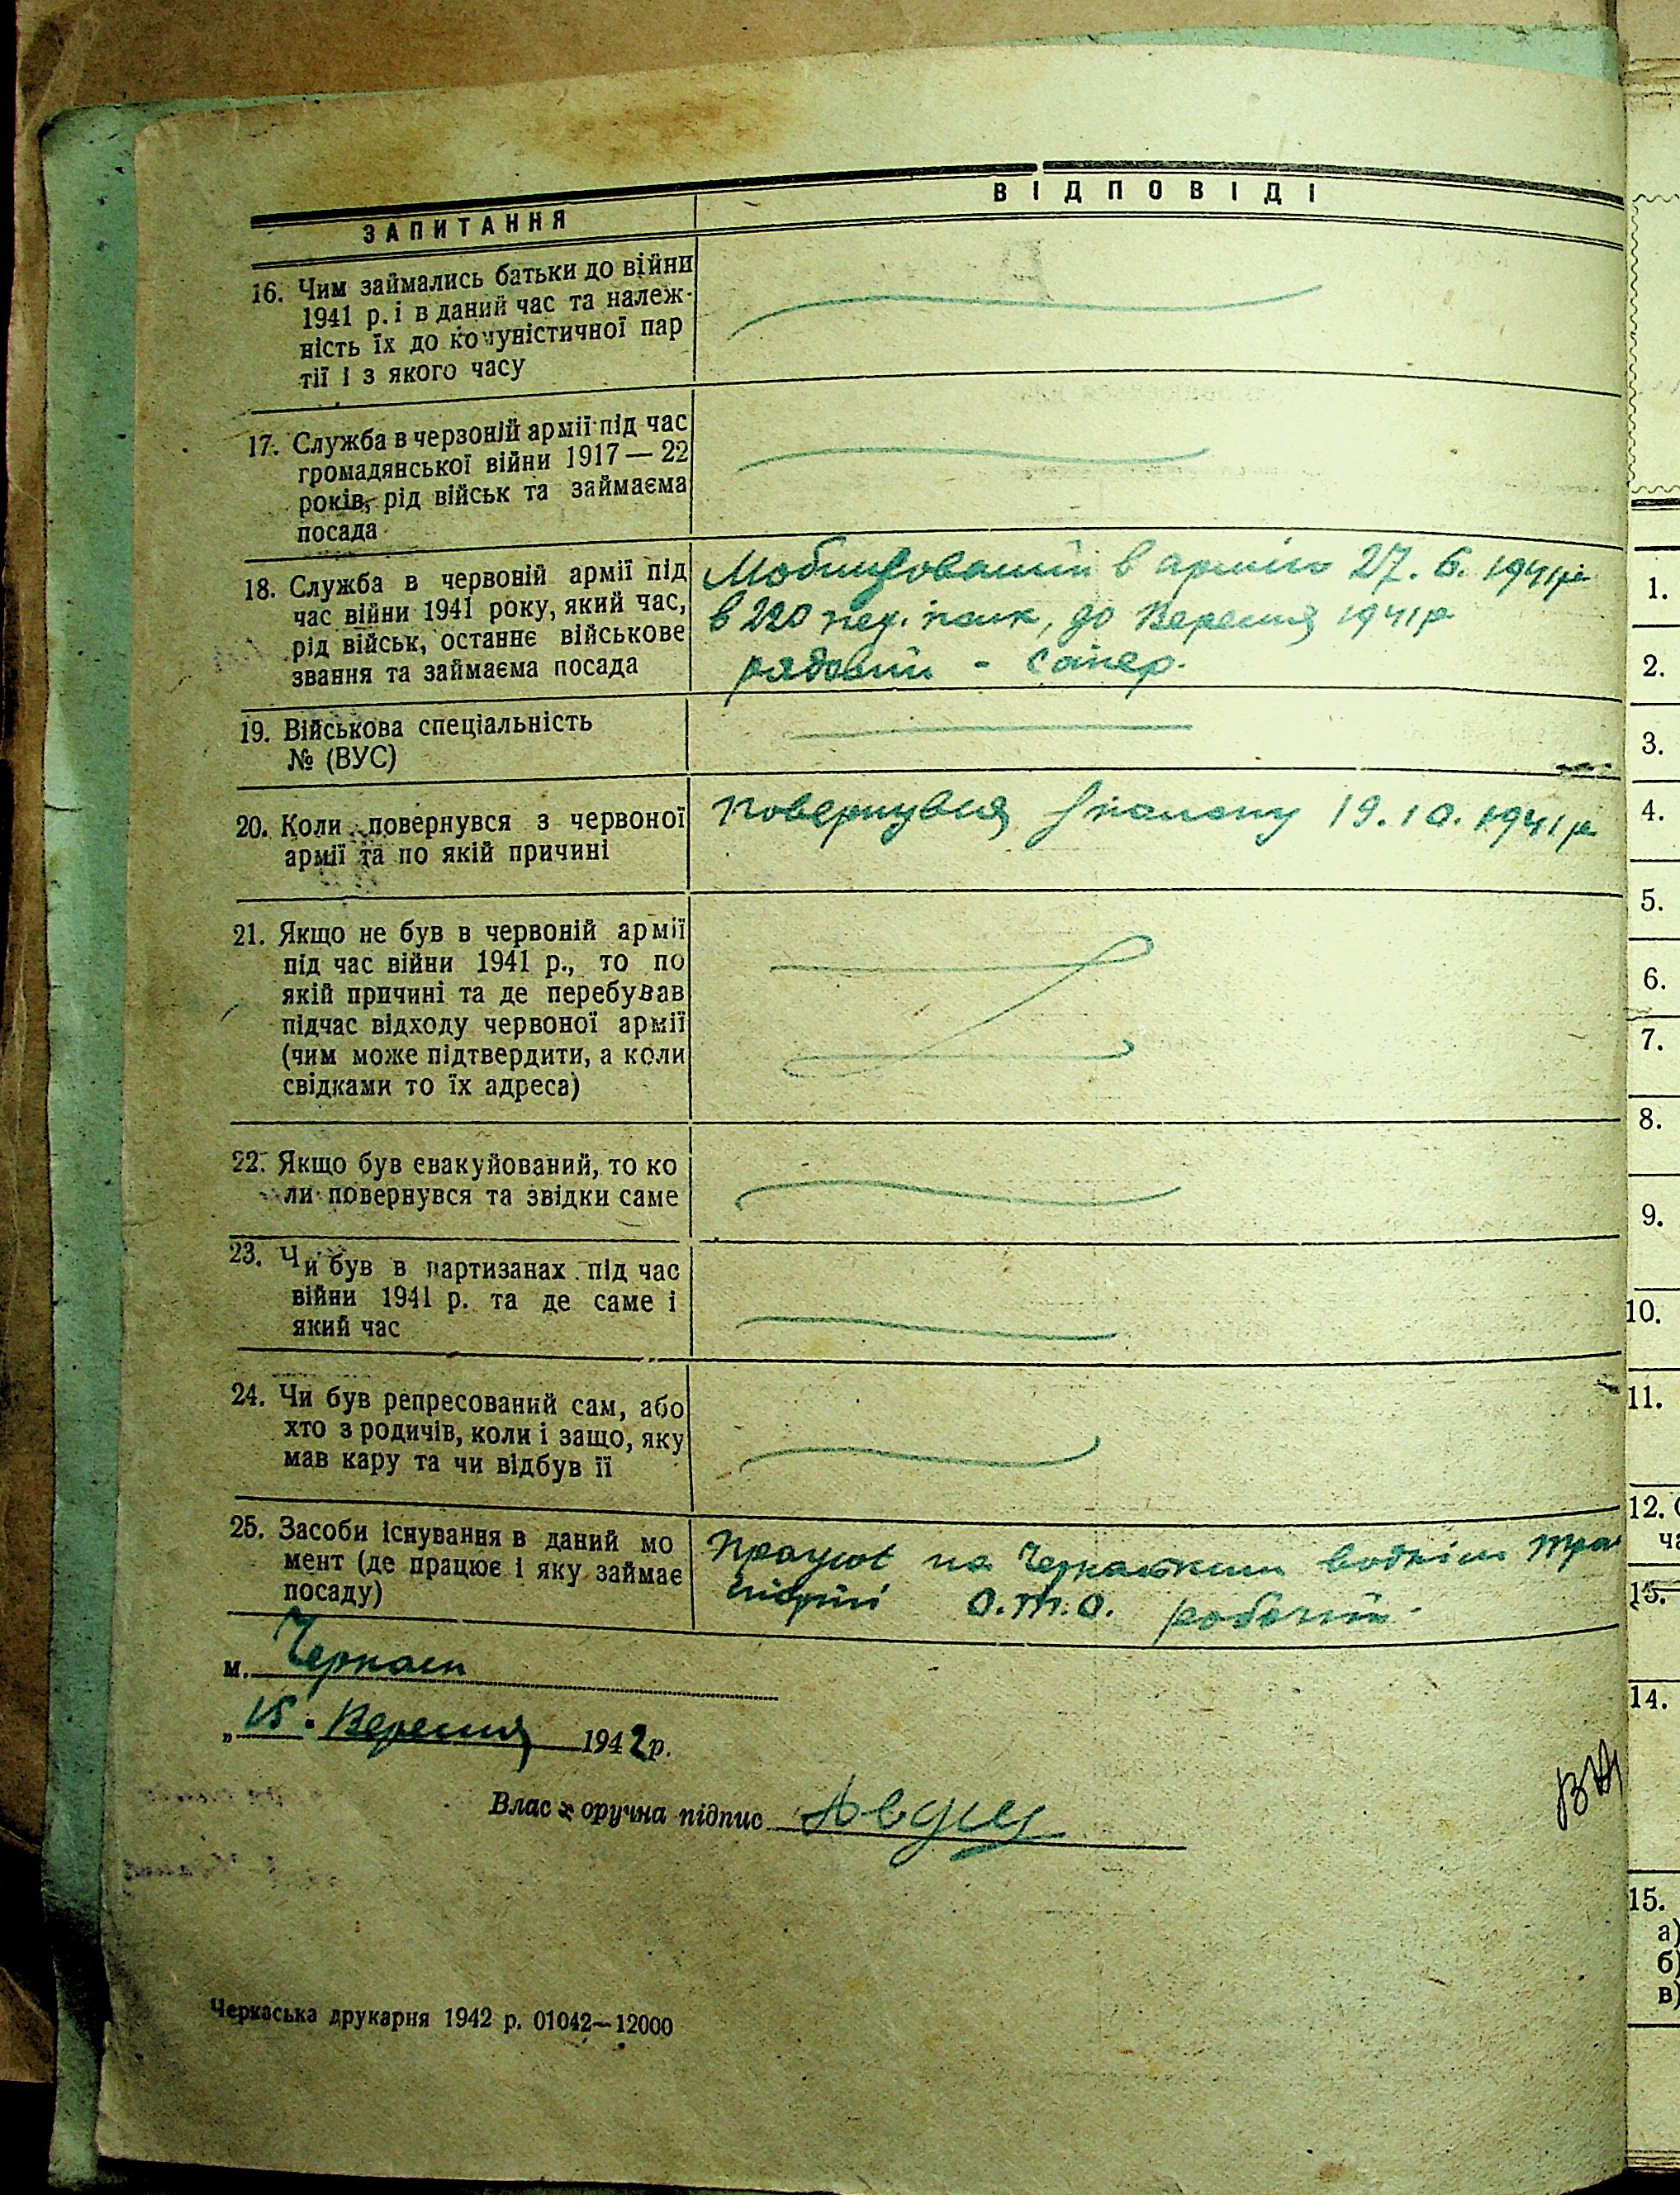 ЗАПИТАННЯ
ВІДПОВІДІ
16. Чим займались батьки до війни
1941 р. і в даний час та належ-
ність їх до комуністичної пар
тії і з якого часу
17. Служба в червоній армії під час
громадянської війни 1917—22
років, рід військ та займаєма
посада
18. Служба в червоній армії під
час війни 1941 року, який час,
рід військ, останнє військове
звання та займаєма посада
Мобілізований в армію 27. 6. 1941р
в 220 пех. полк, до Вересня 1941р
рядовий - сапер.
19. Військова спеціальність
№ (ВУС)
20. Коли повернувся з червоної
армії та по якій причині
Повернувся з полону 19.10.1941р
21. Якщо не був в червоній армії
під час війни 1941 р., то по
якій причині та де перебував
підчас відходу червоної армії
(чим може підтвердити, а коли
свідками то їх адреса)
22. Якщо був евакуйований, то ко
ли повернувся та звідки саме
23. Чи був в партизанах під час
війни 1941 р. та де саме і
який час
24. Чи був репресований сам, або
хто з родичів, коли і защо, яку
мав кару та чи відбув її
25. Засоби існування в даний мо
мент (де працює і яку займає
посаду)
Працює на Черкаським воднім тран
спорті О.т.о. робочий.
м. Черкаси
„15. Вересня 1942 р.
Власноручна підпис
Черкаська друкарня 1942 р. 01042—12000
1.
2.
3.
4.
5.
6.
7.
8.
9.
10.
11.
12.
ча
13.
14.
15.
а)
б)
в)